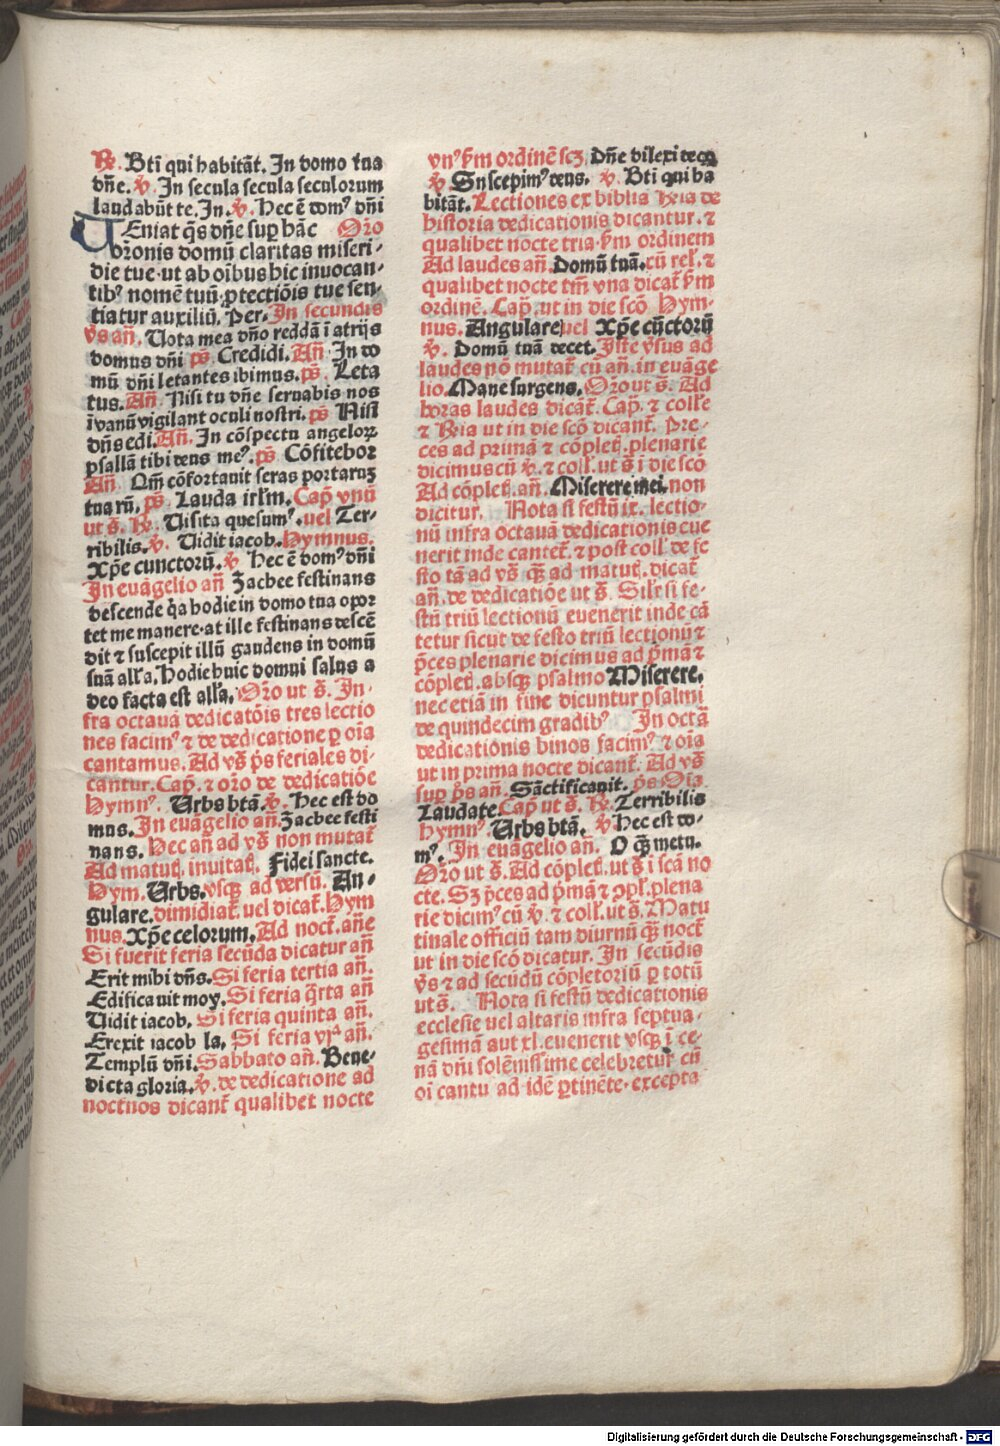 R̃. Btī qui habitāt. In domo tua
dñe. v̄. In secula secula seculorum
laudabūt te. In. v̄. Hec ē dom⁹ dñi
UEniat q̄s dñe sup hāc Oro
oronis domū claritas miseri-
die tue·ut ab oībus hic inuocan-
tib⁹ nomē tuū·ptectiōis tue sen-
tiatur auxiliū. Per. In secundis
v̄s añ. Uota mea dño reddā ī atrijs
domus dñi ps̄. Credidi. Añ. In do
mū dñi letantes ibimus. ps̄. Leta
tus. Añ. Nisi tu dñe seruabis nos
īvanū vigilant oculi nostri. ps̄ Nisi
dñs edi. Añ. In cōspectu angeloꝝ
psallā tibi deus me⁹. ps̄. Cōfitebor
Añ. Qm̄ cōfortauit seras portaruꝫ
tuarū. ps̄. Lauda irłm. Cap̄. vnū
ut s̄. R̃. Uisita quesum⁹. uel Ter-
ribilis. v̄. Uidit iacob. Hymnus.
Xp̄e cunctorū. v̄ Hec ē dom⁹ dñi
In euāgelio añ Zachee festinans
descende q̄a hodie in domo tua opor
tet me manere·at ille festinans descē
dit ⁊ suscepit illū gaudens in domū
suā alła. Hodie huic domui salus a
deo facta est alła. Oro ut s̄. In-
fra octauā dedicatōis tres lectio
nes facim⁹ ⁊ de dedicatione ꝑ oīa
cantamus. Ad v̄s ps̄ feriales di-
cantur. Cap̄. ⁊ oro de dedicatiōe
Hymn⁹. Urbs btā. v̄. Hec est do
mus. In euāgelio añ. Zachee festi
nans. Hec añ ad v̄s non mutať
Ad matuꝭ. inuitaꝭ. Fidei sancte.
Hym. Urbs. vsqꝫ ad versū. An-
gulare. dimidiať uel dicať. Hym
nus. Xp̄e celorum. Ad nocť. añe
Si fuerit feria secūda dicatur añ
Erit mihi dñs. Si feria tertia añ.
Edificauit moy. Si feria q̄rta añ
Uidit iacob. Si feria quinta añ.
Erexit iacob la. Si feria vjᵃ añ.
Templū dñi. Sabbato añ. Bene-
dicta gloria. v̄. de dedicatione ad
nocturnos dicanť qualibet nocte
vn⁹ ꝑm ordinē scꝫ. Dñe dilexi decoꝝ
v̄ Suscepim⁹ deus. v̄. Bti qui ha
bitāt. Lectiones ex biblia Hr̄ia de
historia dedicationis dicantur. ⁊
qualibet nocte tria·ꝑm ordinem
Ad laudes añ. Domū tuā. cū rel̓. ⁊
qualibet nocte tm̄ vna dicať ꝑm
ordinē. Cap̄. ut in die scō Hym-
nus. Angulare uel Xp̄e cūctorū
v̄. Domū tuā decet. Iste v̄sus ad
laudes nō mutať cū añ. in euāge
lio. Mane surgens. Oro ut s̄. Ad
horas laudes dicāť. Cap̄. ⁊ coll̓e
⁊ R̄ia ut in die scō dicanť. Pre-
ces ad primā ⁊ cōpleꝭ. plenarie
dicimus cū v̄. ⁊ coll̓. ut s̄ ī die scō
Ad cōpleꝭ. añ. Miserere mei. non
dicitur. Nota si festū ix. lectio-
nū infra octauā dedicationis eue
nerit inde canteť. ⁊ post coll̓ de fe
sto tā ad v̄s qꝫ ad matuꝭ. dicať
añ. de dedicatiōe ut s̄. Sil̓r si fe-
stū triū lectionū euenerit inde cā
tetur sicut de festo triū lectionū ⁊
p̄ces plenarie dicimus ad p̄mā ⁊
cōpleꝭ. absqꝫ psalmo Miserere.
nec etiā in fine dicuntur psalmi
de quindecim gradib⁹ In octā
dedicationis binos facim⁹ ⁊ oīa
ut in prima nocte dicanť. Ad v̄s
sup ps̄ añ. Sāctificauit. ps̄ Oīa
Laudate. Cap̄ ut s̄. R̃. Terribilis
hymn⁹. Urbs btā. v̄ Hec est do-
m⁹. In euāgelio añ. O qꝫ metu.
Oro ut s̄. Ad cōpleꝭ. ut s̄ ī scā no
cte. Sꝫ p̄ces ad p̄mā ⁊ ɔpl̓. plena
rie dicim⁹ cū v̄. ⁊ coll̓. ut s̄. Matu
tinale officiū tam diurnū qꝫ nocť
ut in die scō dicatur. In secūdis
v̄s ⁊ ad secūdū cōpletoriū ꝑ totū
ut s̄. Nota si festū dedicationis
ecclesie uel altaris infra septua-
gesimā aut xl. euenerit vsqꝫ ī ce-
nā dñi solēnissime celebretur cū
oī cantu ad idē ꝑtinēte·excepta
Digitalisierung gefördert durch die Deutsche Forschungsgemeinschaft - DFG